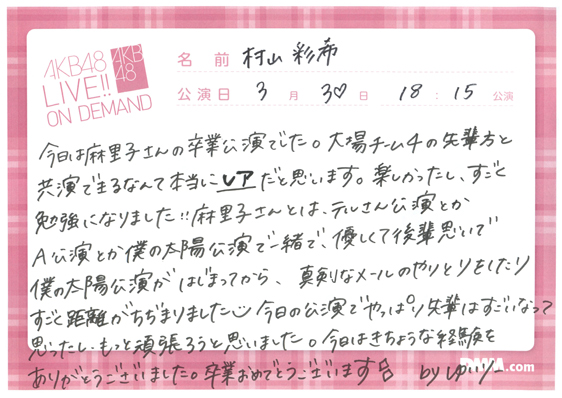 AKB48
LIVE!!
ON DEMAND
AKB
48
名前 村山 彩希
公演日 3月 30日 18:15 公演
今日は麻里子さんの卒業公演でした。大場チーム4の先輩方と
共演できるなんて本当にレアだと思います。楽しかったし、すごく
勉強になりました!!麻里子さんとは、テルさん公演とか
A公演とか僕の太陽公演で一緒で、優しくて後輩思いで
僕の太陽公演がはじまってから、真剣なメールのやりとりをしたり
すごく距離がちぢまりました 今日の公演でやっぱり先輩はすごいなって
思ったし、もっと頑張ろうと思いました。今日はきちょうな経験を
ありがとうございました。卒業おめでとうございます by ゆいりー
DMM.com